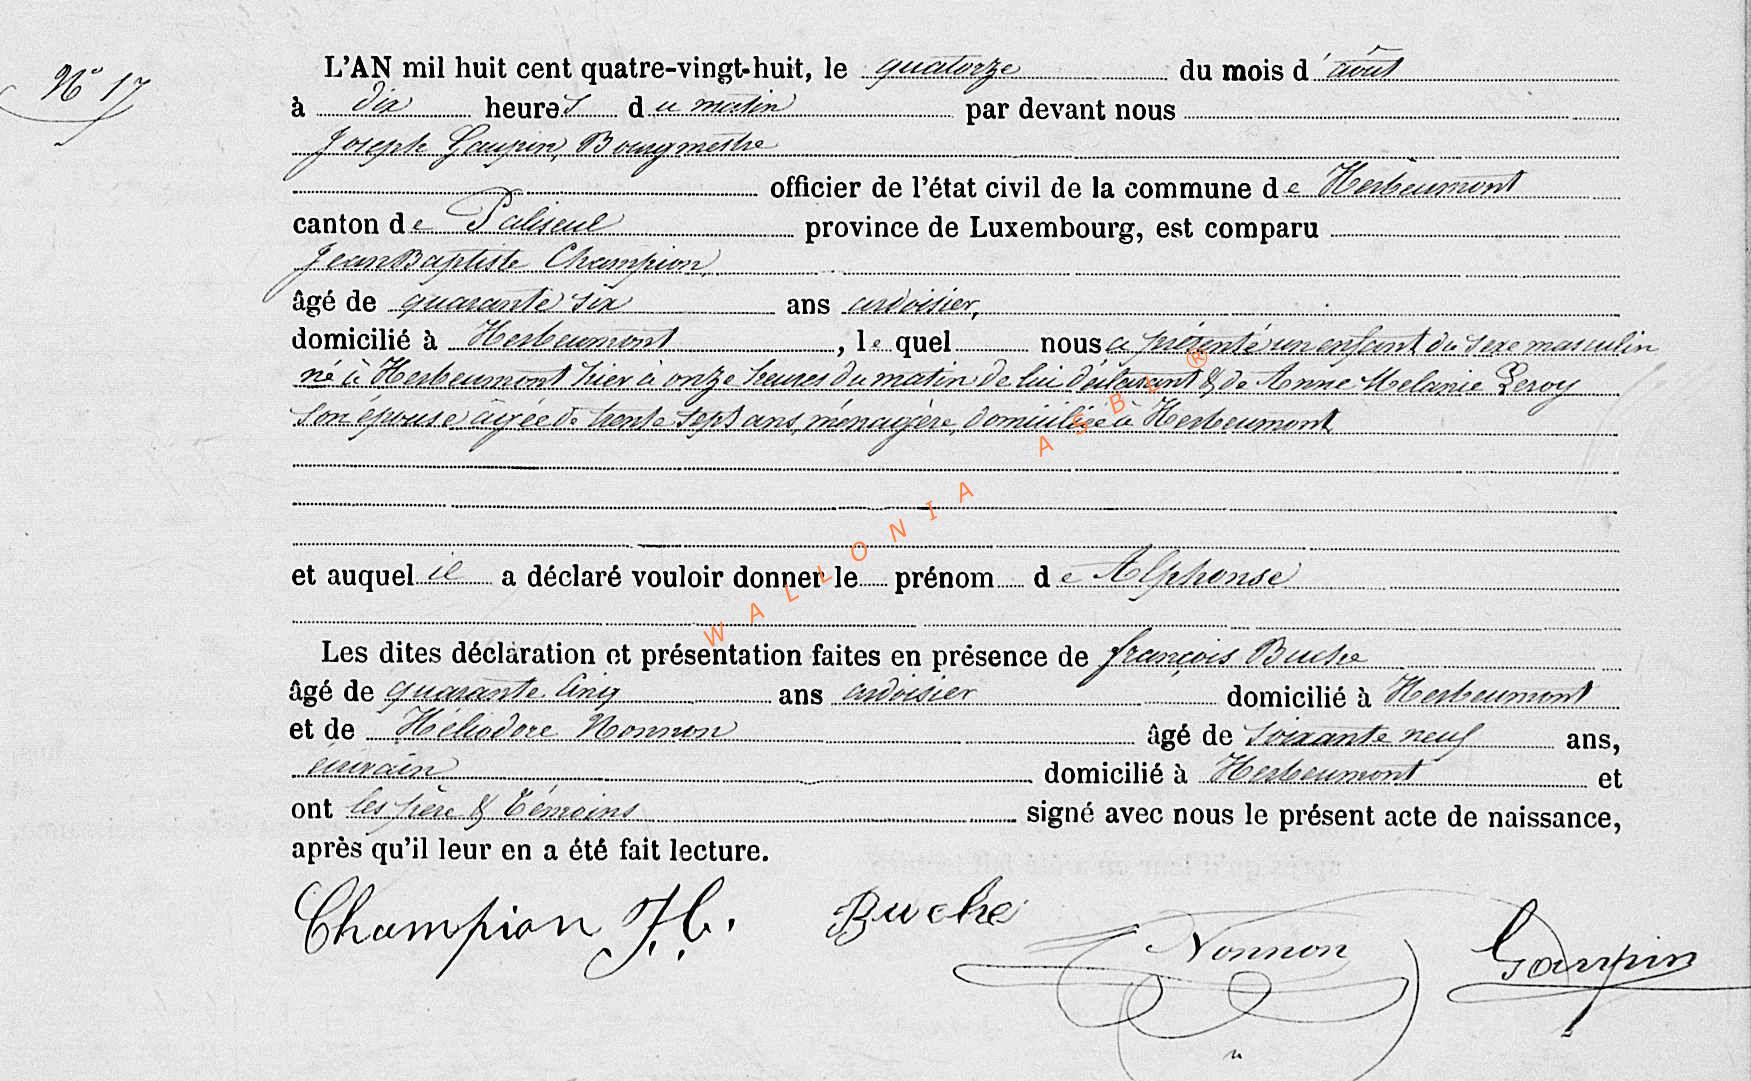 N° 17
L'AN mil huit cent quatre-vingt-huit, le quatorze du mois d'août
à dix heures du matin par devant nous
Joseph Gaupin, Bourgmestre
officier de l'état civil de la commune de Herbeumont
canton de Paliseul province de Luxembourg, est comparu
Jean Baptiste Champion,
âgé de quarante six ans ardoisier,
domicilié à Herbeumont, le quel nous a présenté un enfant du sexe masculin
né à Herbeumont hier à onze heures du matin de lui déclarant & de Anne Melanie Leroy
son épouse âgée de trente sept ans, ménagère, domiciliée à Herbeumont,
et auquel il a déclaré vouloir donner le prénom de Alphonse
Les dites déclaration et présentation faites en présence de françois Buche
âgé de quarante cinq ans ardoisier domicilié à Herbeumont
et de Héliodore Nonnon âgé de soixante neuf ans,
écrivain domicilié à Herbeumont et
ont les père & témoins signé avec nous le présent acte de naissance,
après qu'il leur en a été fait lecture.
Champion J. Buche Nonnon Gaupin
WALLONIA ASBL ®